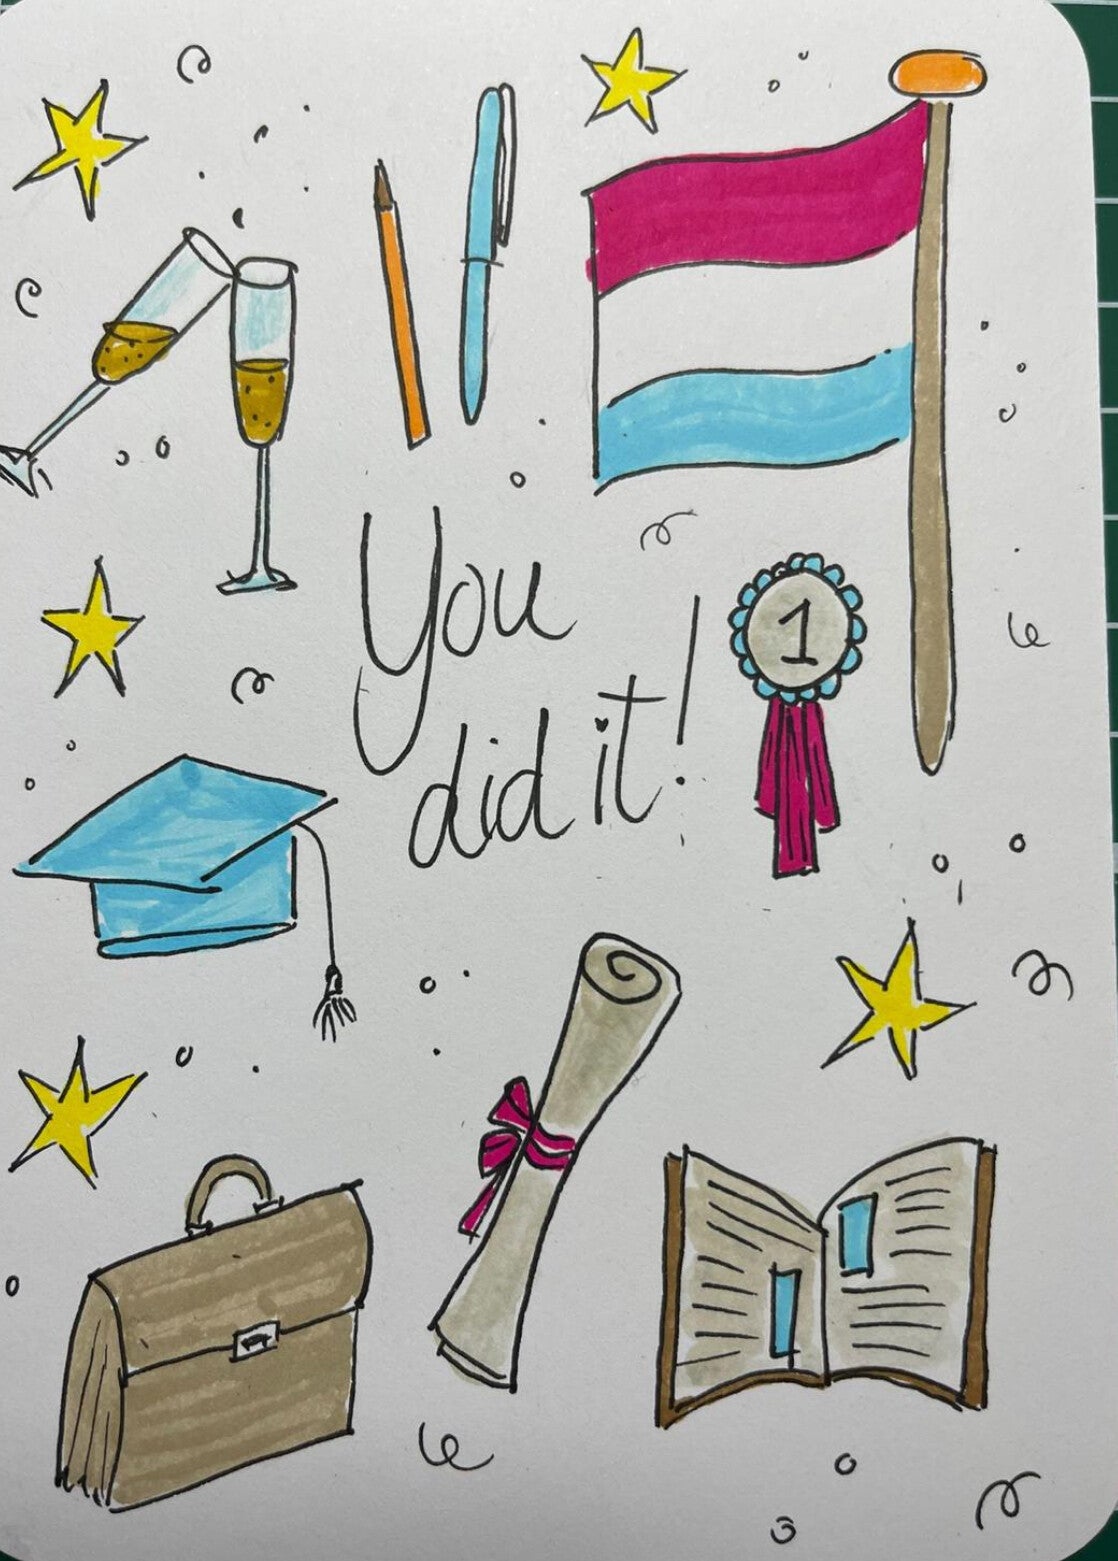 You
did it!
1